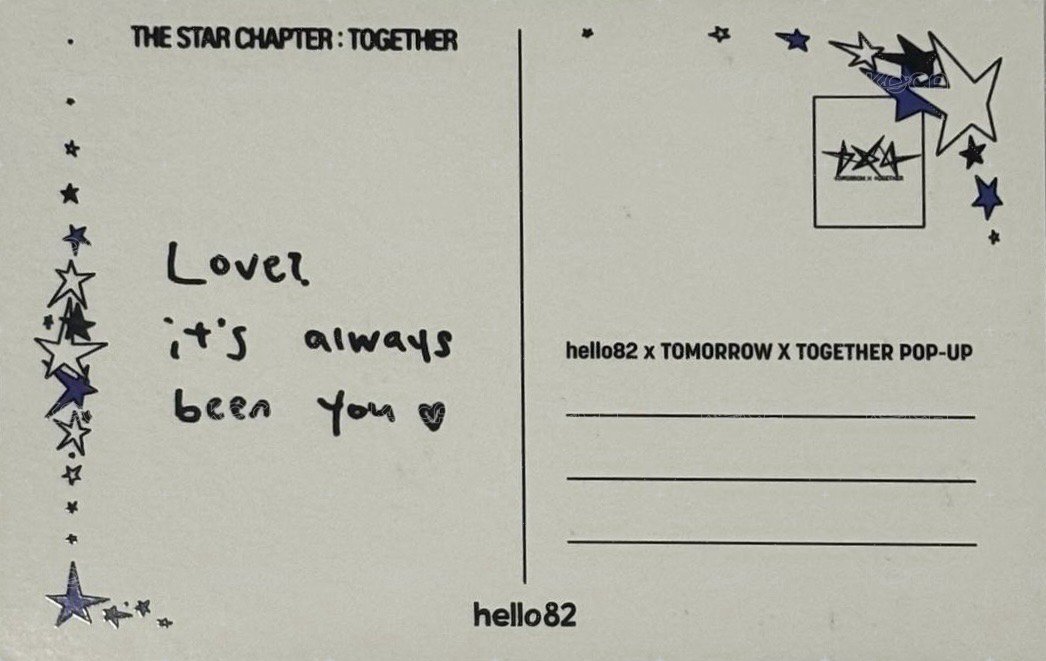 THE STAR CHAPTER : TOGETHER
Lover
it's always
been you ♥
TOMORROW X TOGETHER
hello82 x TOMORROW X TOGETHER POP-UP
hello82